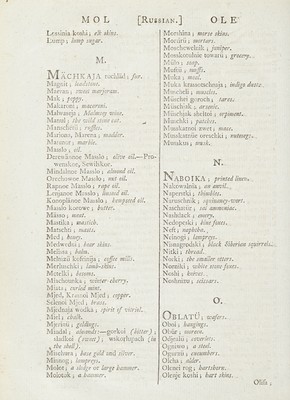 MOL [RUSSIAN.] OLE
Lossinia koshi; elk skins.
Lump; lump sugar.
M.
MÄCHKAJA ruchläd; fur.
Magnit; loadstone.
Mairan; sweet marjoram.
Mak; poppy.
Makaroni; macaroni.
Malwasija; Malmsey wine.
Manscheti; ruffles.
Marioas, Marena; madder.
Marmor; marble.
Masslo; oil.
Derewännoe Masslo; olive oil.—Pro-
wanskoe, Sewilskoe.
Mindalnoe Masslo; almond oil.
Orechowoe Masslo; nut oil.
Rapnoe Masslo; rape oil.
Lenjanoe Masslo; linseed oil.
Konopläanoe Masslo; hempseed oil.
Masslo korowe; butter.
Mässo; meat.
Mastika; mastich.
Matschti; masts.
Med; honey.
Medweshi; bear skins.
Melissa; balm.
Meluschki; lamb-skins.
Metelki; besoms.
Mischourka; winter cherry.
Mjata; curled mint.
Mjed, Krasnoi Mjed; copper.
Selenoi Mjed; brass.
Mjednaja wodka; spirit of vitriol.
Mjel; chalk.
Mjerini; geldings.
Mindal; almonds:—gorkoi (bitter),
sladkoi (sweet) wskorlupach (in
the shell).
Mischura; base gold and silver.
Minnog; lampreys.
Molot; a sledge or large hammer.
Molotok; a hammer.
Morshina; morse skins.
Mortiri; mortars.
Moschewelnik; juniper.
Moskotilnie towari; grocery.
Müilo; soap.
Muftii; muffs.
Muka; meal.
Muschiak; arsenic.
Müschei goroch; tares.
Müschjak; arsenic.
Müschjak sheltoi; orpiment.
Muschki; patches.
Muskatnoi zwet; mace.
Muskatnie oreschki; nutmegs.
Muskus; musk.
N.
NABOIKA; printed linen.
Nakowalnia; an anvil.
Naperstki; thimbles.
Naruschnik; sal ammoniac.
Nashdack; emery.
Nedopeski; blue foxes.
Neft; naphtha.
Neinogi; lampreys.
Nitki; thread.
Noski; the smaller otters.
Noshi; knives.
Noshnitzi; scissars.
O.
OBLATÜ; wafers.
Oboi; hangings.
Obür; moreen.
Odejali; coverlets.
Ogniwo; a steel.
Ogurzi; cucumbers.
Olcha; alder.
Olenei rog; hartshorn.
Olenje koshi; hart skins.